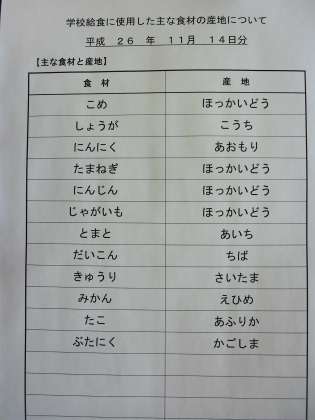 学校給食に使用した主な食材の産地について
平成 26 年 11月 14日分
【主な食材と産地】
食 材 産 地
こめ ほっかいどう
しょうが こうち
にんにく あおもり
たまねぎ ほっかいどう
にんじん ほっかいどう
じゃがいも ほっかいどう
とまと あいち
だいこん ちば
きゅうり さいたま
みかん えひめ
たこ あふりか
ぶたにく かごしま